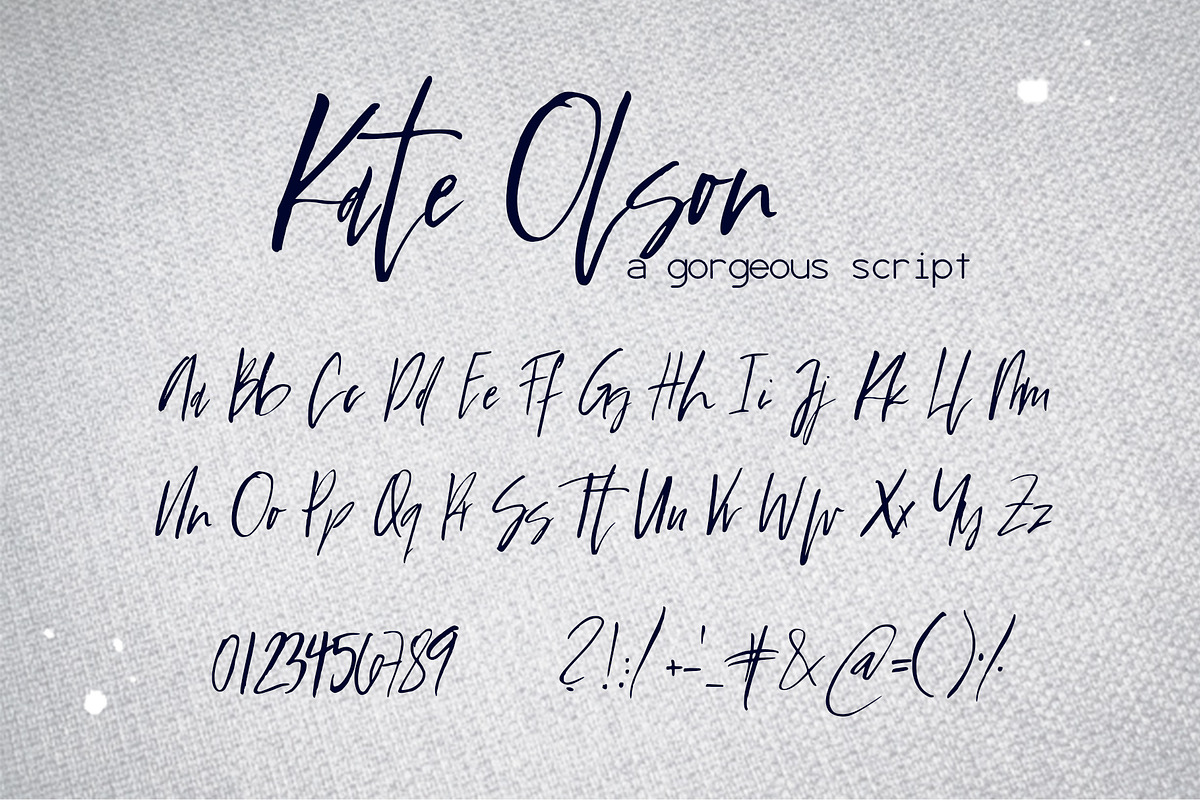 Kate Olson
a gorgeous script
Aa Bb Cc Dd Ee Ff Gg Hh Ii Jj Kk Ll Mm
Nn Oo Pp Qq Rr Ss Tt Uu Vv Ww Xx Yy Zz
0123456789 ?!:/+-'_#&@=()%